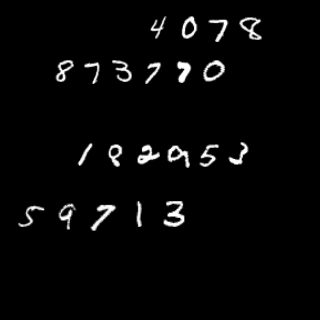 4078
873770
182953
59713